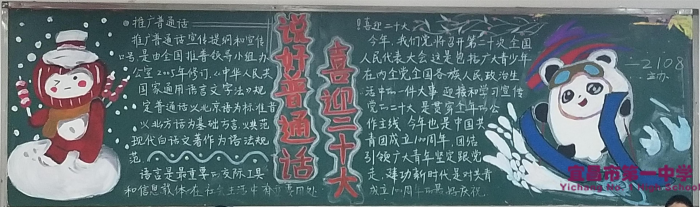 推广普通话
推广普通话宣传提纲和宣传
口号是由全国推普领导小组办
公室2005年修订.《中华人民共
国家通用语言文字法》规
定普通话以北京语为标准音
以北方话为基础方言.以典范
现代白话文著作为语法规
范
语言是最重要的交际工具
和信息载体.在社会
说好普通话
喜迎二十大
喜迎二十大
今年,我们党将召开第二十次全国
人民代表大会这是包括广大青少年
在内全党全国各族人民政治生
活中的一件大事 迎接和学习宣传
党二十大 是贯穿全年的
作主线 今年也是中国共
青团成立100周年.团结
引领广大青年坚定跟党
走、建功新时代是对共青
成立100周年的最好庆祝.
二2108
宜昌市第一中学
Yichang No.1 High School